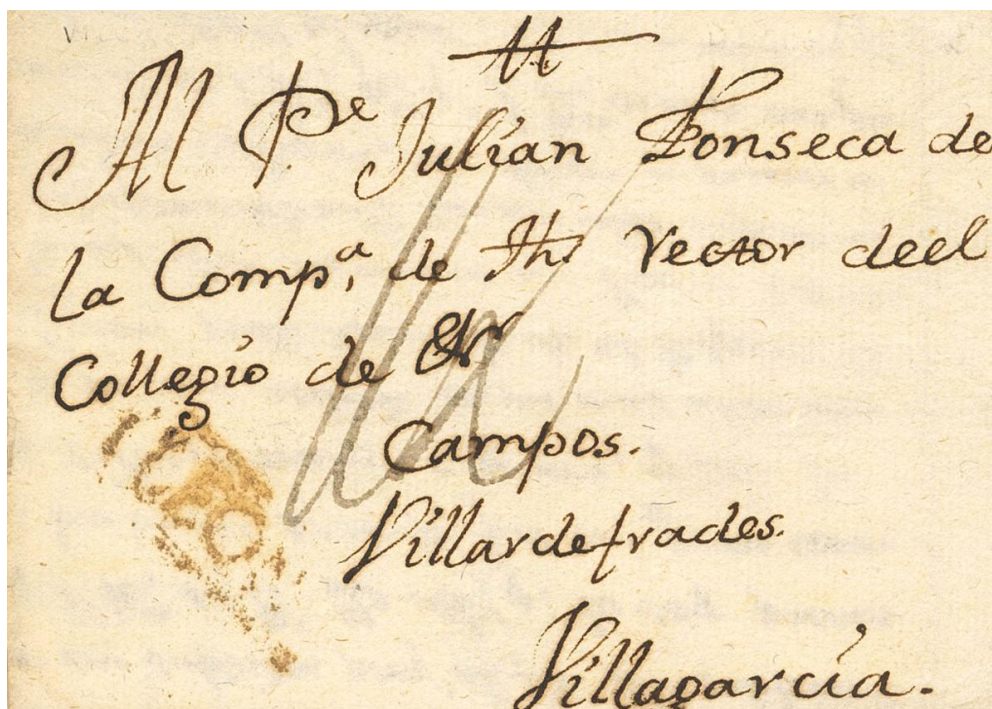 Al Pe Julian Fonseca de
la Compa, de Jhs rector deel
Collegio de &r
Campos.
Villardefrades.
Villagarcía.